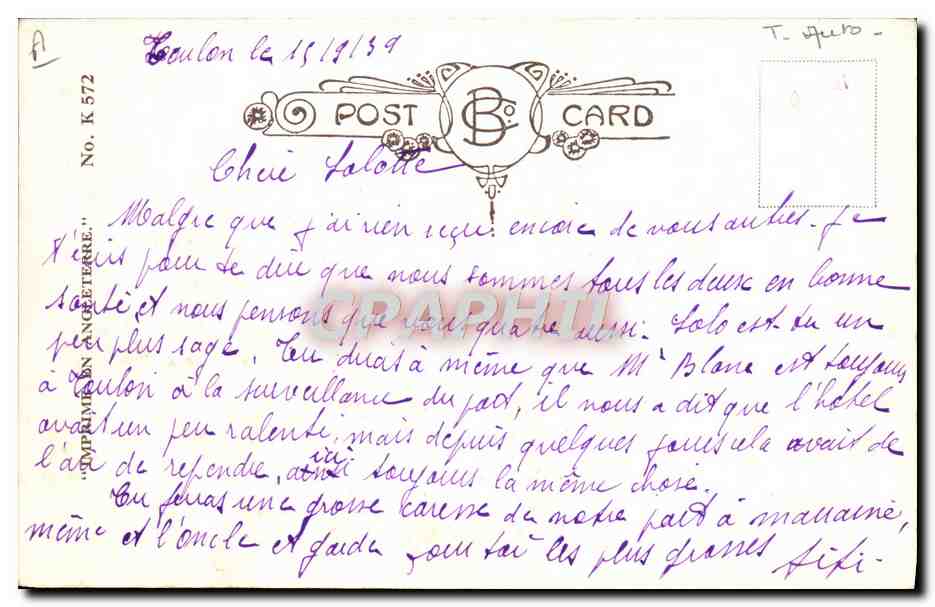 A
T. Auto -
Toulon le 15/9/39
POST CARD
BCo
"IMPRIMÉ EN ANGLETERRE." No. K 572
Chère Lolotte
Malgre que j'ai rien reçu encore de vous autres. Je
t'écris pour te dire que nous sommes tous les deux en bonne
santé, et nous pensons que vous quatre aussi. Lolo est-tu un
peu plus sage. Tu diras à même que Mr Blanc est toujours
à Toulon à la surveillance du port, il nous a dit que l'hôtel
avait un peu ralenti, mais depuis quelques jours cela avait de
l'air de rependre, ici toujours la même chose.
Tu feras une grosse caresse de notre part à marraine,
même et l'oncle et garde pour toi les plus grosses
Fifi -
CPAPHIL